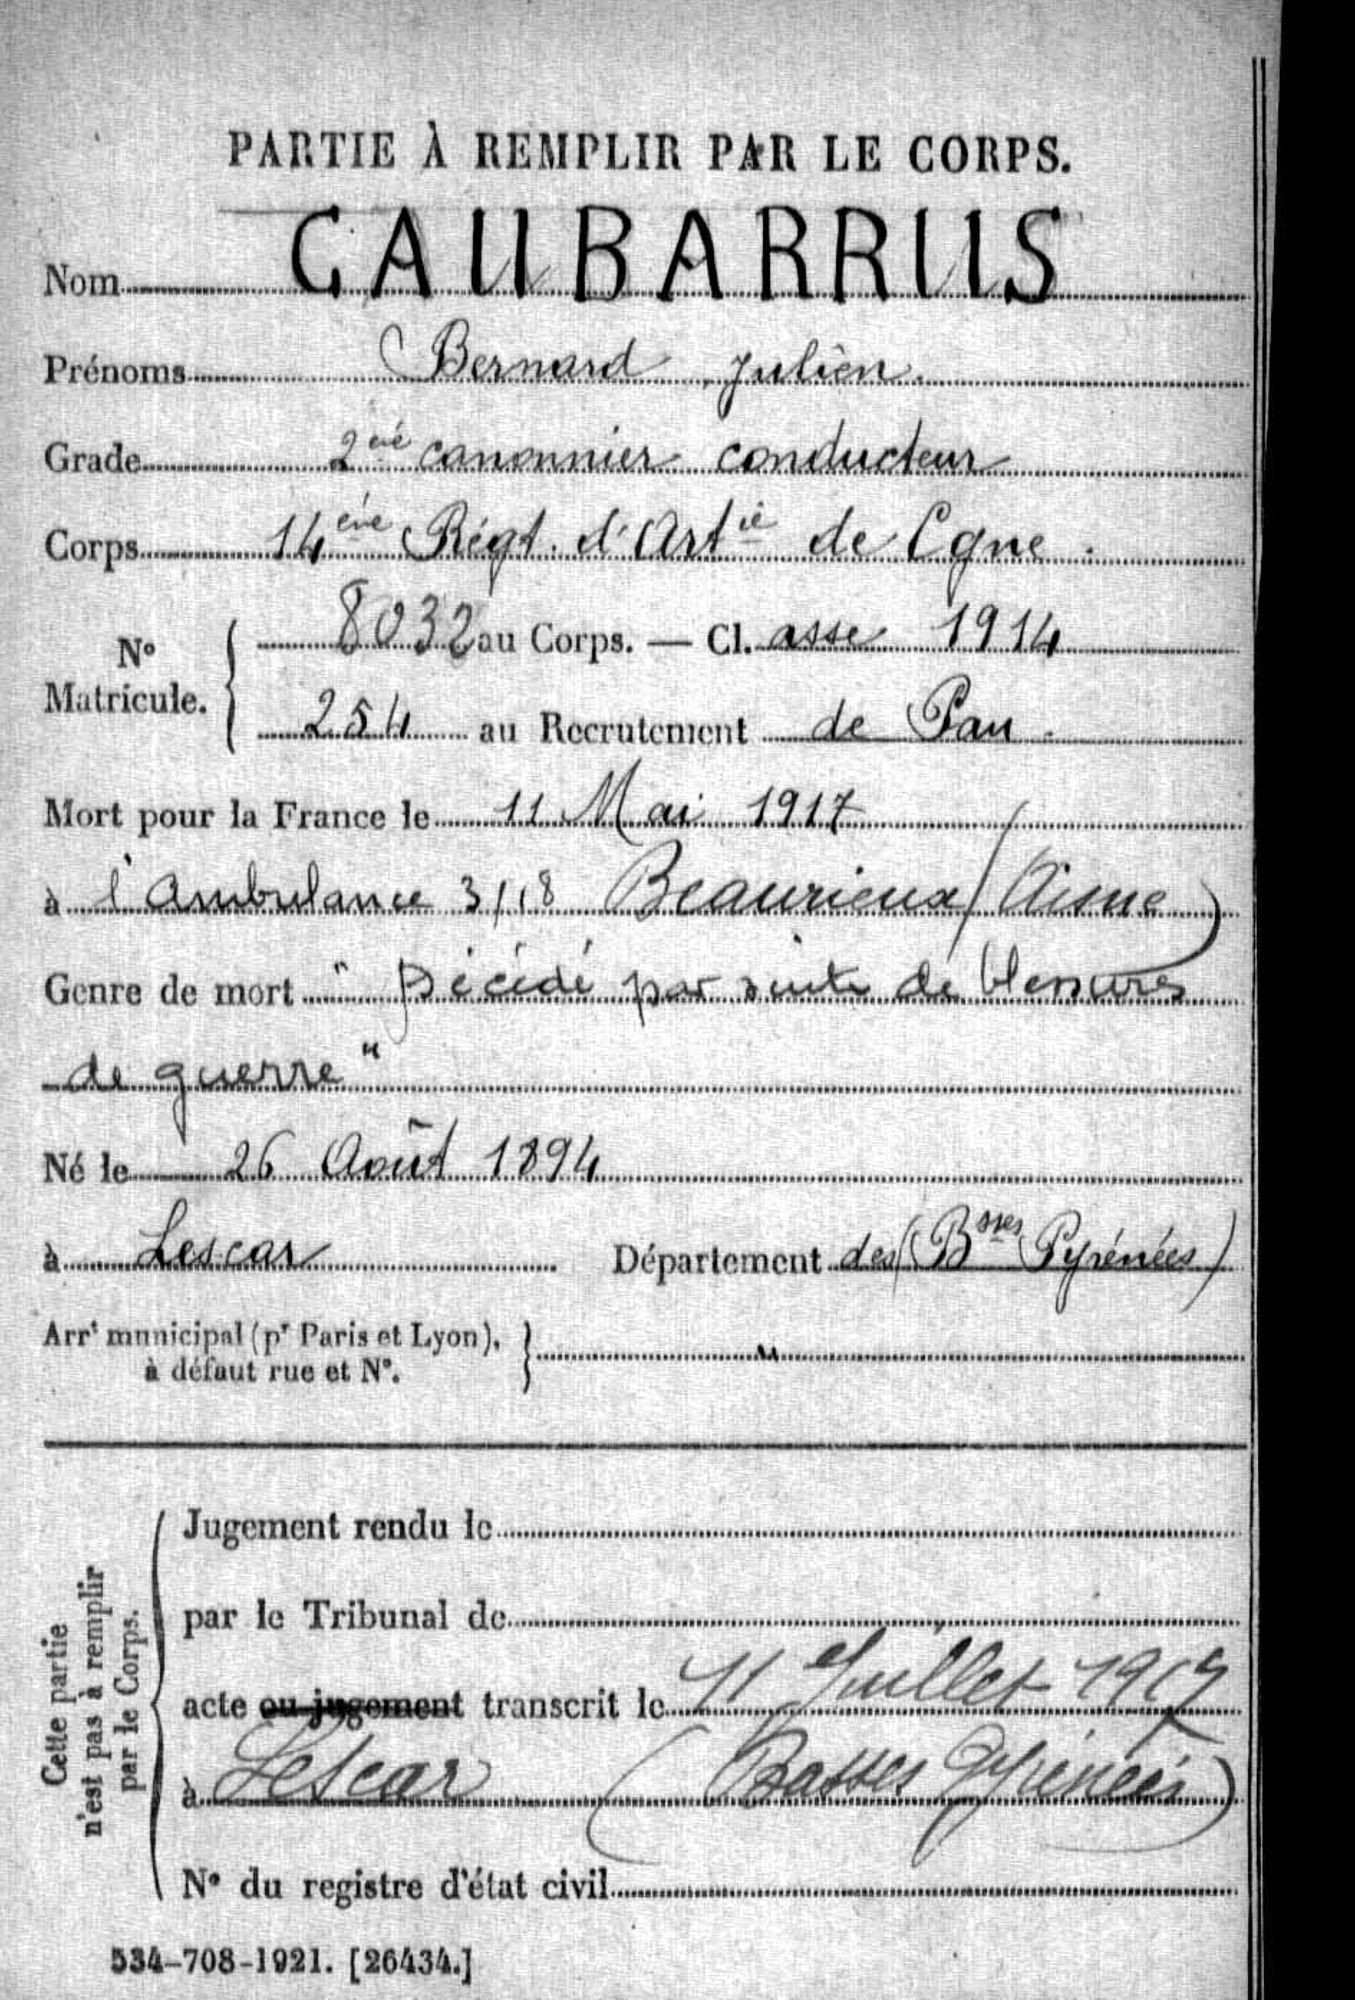 PARTIE À REMPLIR PAR LE CORPS.
Nom CAUBARRUS
Prénoms Bernard Julien.
Grade 2ème canonnier conducteur
Corps 14ème Régt. d'Artie de Cgne.
N° Matricule. { 8032 au Corps. — Cl. asse 1914
254 au Recrutement de Pau.
Mort pour la France le 11 Mai 1917
à l'Ambulance 3/18 Beaurieux (Aisne)
Genre de mort " Décédé par suite de blessures
de guerre "
Né le 26 Août 1894
à Lescar Département des (Bsses Pyrénées)
Arrt municipal (pr Paris et Lyon), à défaut rue et N°. } "
Cette partie n'est pas à remplir par le Corps.
Jugement rendu le
par le Tribunal de
acte ou jugement transcrit le 11 Juillet 1917
à Lescar (Basses Pyrénées)
N° du registre d'état civil
534-708-1921. [26434.]